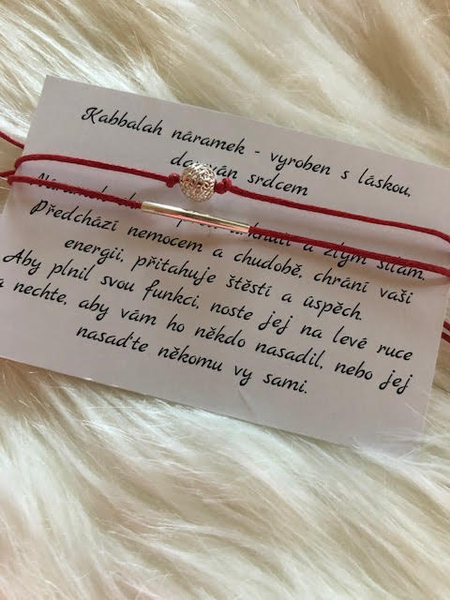 Kabbalah náramek - vyroben s láskou,
darován srdcem
Náramek a zlým silám.
Předchází nemocem a chudobě, chrání vaši
energii, přitahuje štěstí a úspěch.
Aby plnil svou funkci, noste jej na levé ruce
a nechte, aby vám ho někdo nasadil, nebo jej
nasaďte někomu vy sami.